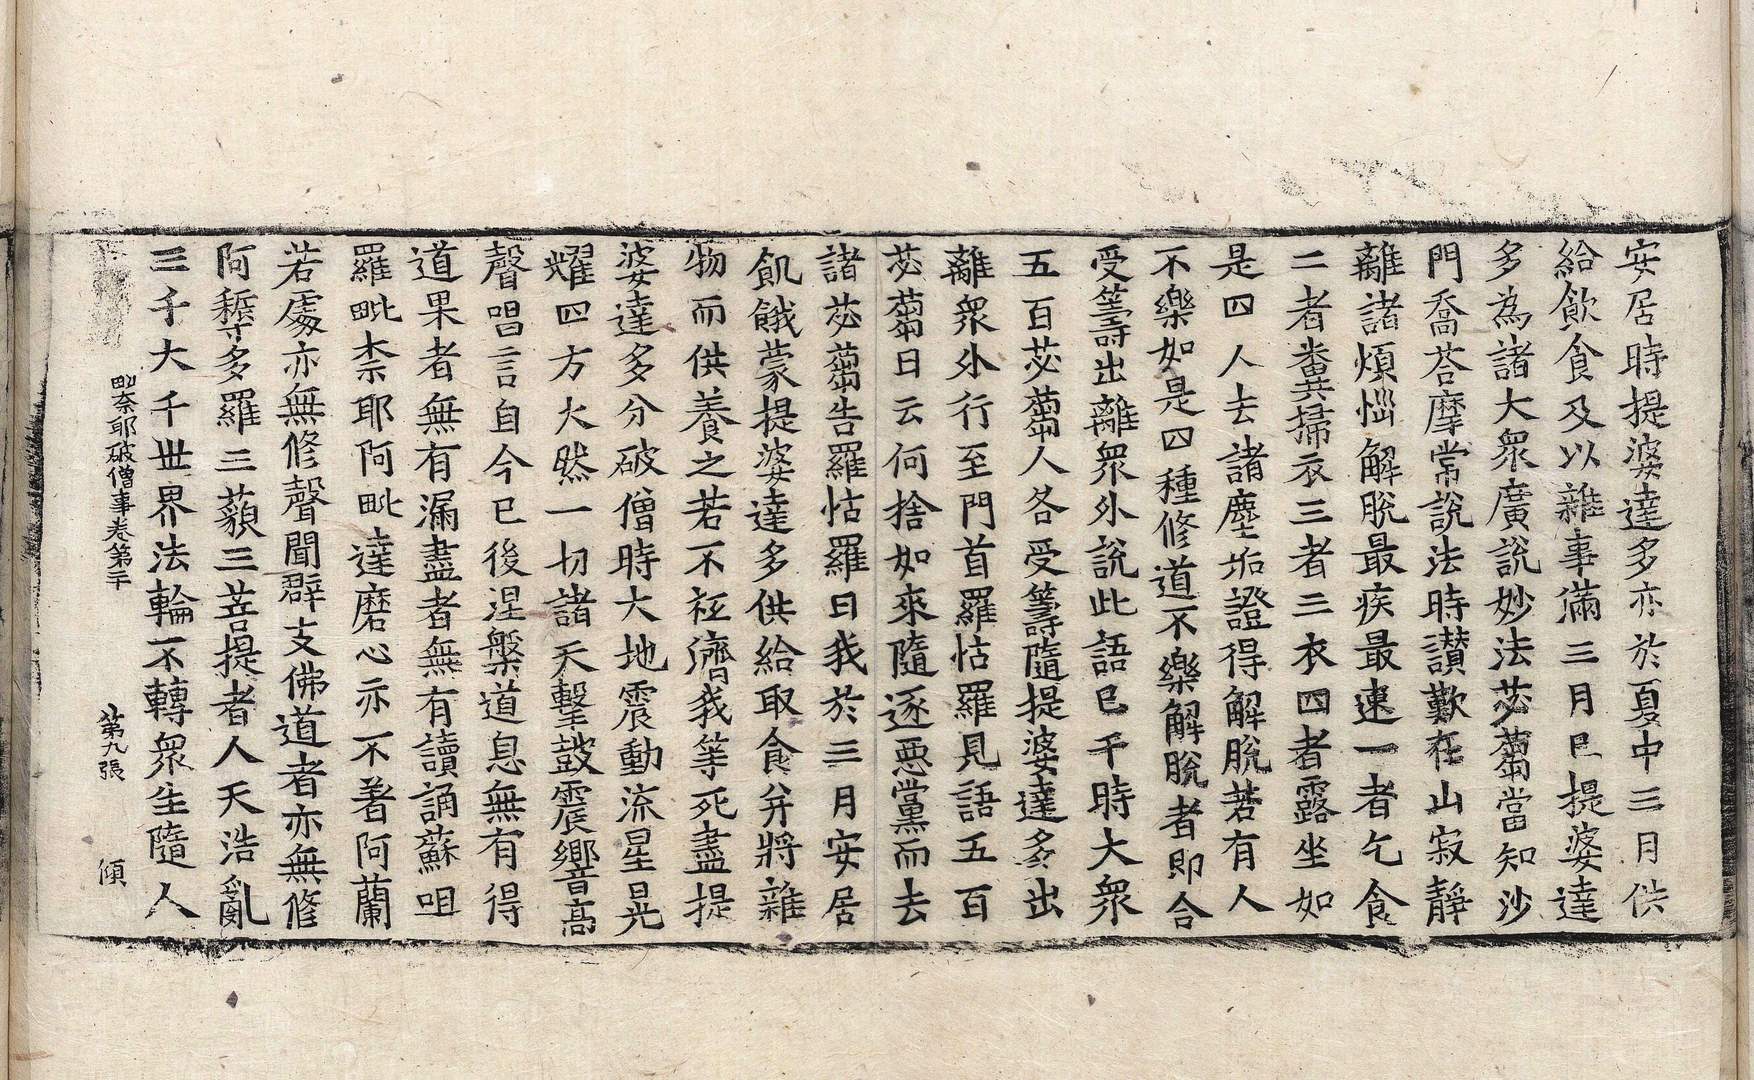 安居時提婆達多亦於夏中三月供
給飲食及以雜事滿三月已提婆達
多為諸大衆廣說妙法苾蒭當知沙
門喬荅摩常說法時讃歎在山寂靜
離諸煩惱解脫最疾最速一者乞食
二者糞掃衣三者三衣四者露坐如
是四人去諸塵垢證得解脫若有人
不樂如是四種修道不樂解脫者即合
受籌出離衆外說此語已于時大衆
五百苾蒭人各受籌隨提婆達多出
離衆外行至門首羅怙羅見語五百
苾蒭曰云何捨如來隨逐惡黨而去
諸苾蒭告羅怙羅曰我於三月安居
飢餓蒙提婆達多供給取食并將雜
物而供養之若不拯濟我等死盡提
婆達多分破僧時大地震動流星晃
耀四方火然一切諸天擊鼓震響高
聲唱言自今已後涅槃道息無有得
道果者無有漏盡者無有讀誦蘇呾
羅毗柰耶阿毗達磨心亦不著阿蘭
若處亦無修聲聞辟支佛道者亦無修
阿耨多羅三藐三菩提者人天浩亂
三千大千世界法輪不轉衆生隨人
毗奈耶破僧事卷第二十 第九張 傾